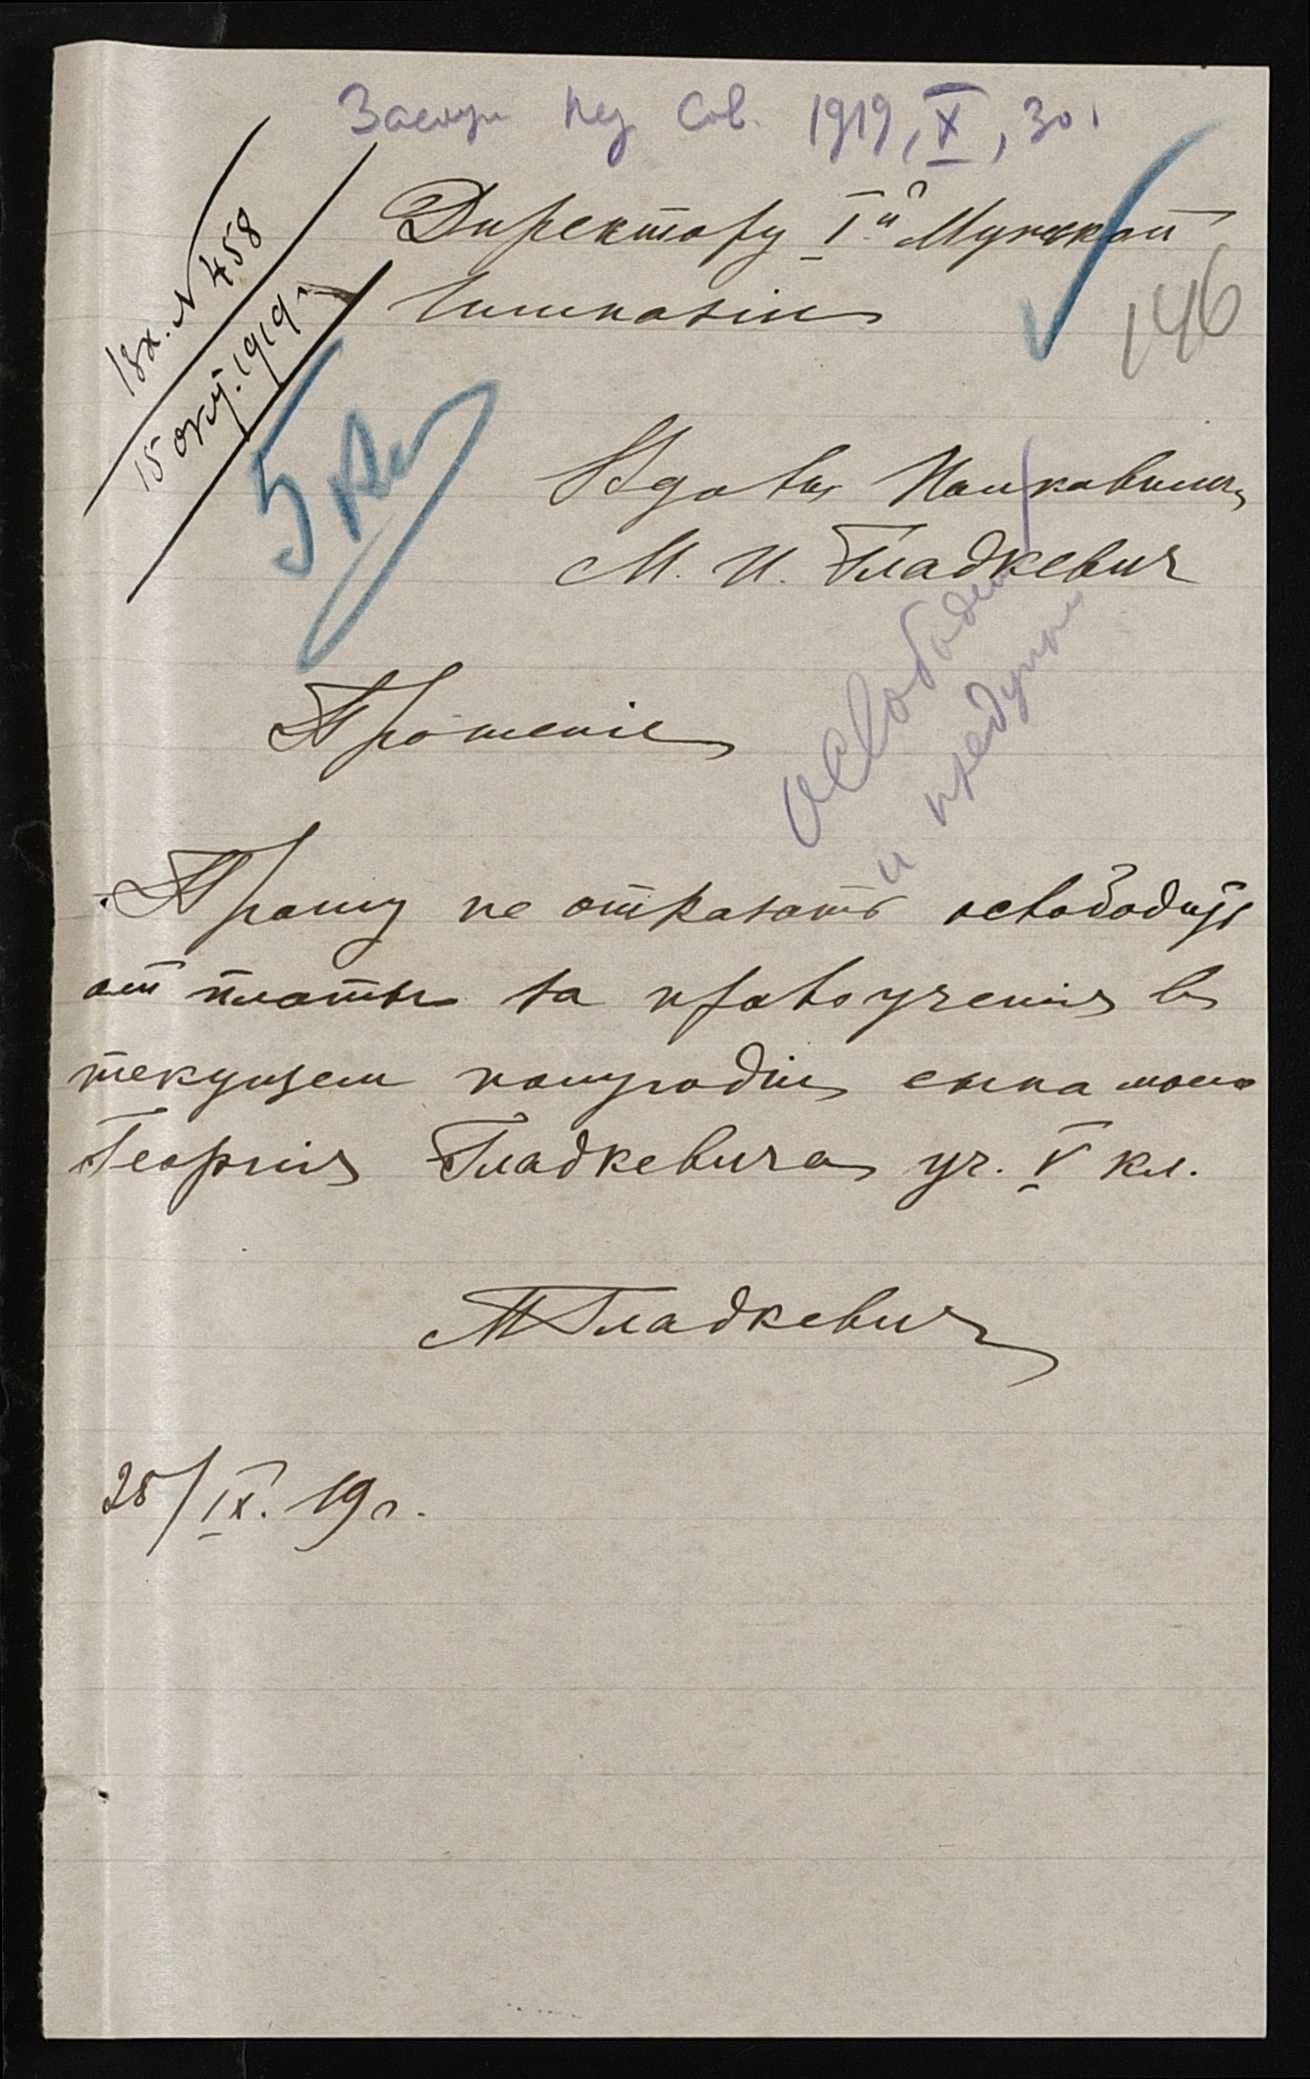 Засл. Пед. Сов. 1919, X, 30.
Вх. N 458
15 окт. 1919 г.
Директору I й Мужской
Гимназіи
146
5 кл
Вдовы Полковника
М. И. Гладкевич
освободить
и
Прошеніе
Прошу не отказать освободить
от платы за правоученія в
текущем полугодіи сына моего
Георгія Гладкевича уч. V кл.
М Гладкевич
28/IX. 19 г.